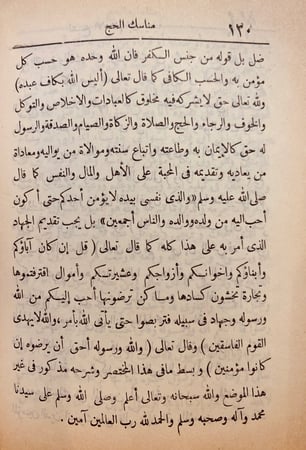 ١٣٠ مناسك الحج
ضل بل قوله من جنس الكفر فان الله وحده هو حسب كل
مؤمن به والحسب الكافى كما قال تعالى (أليس الله بكاف عبده)
ولله تعالى حق لا يشركه فيه مخلوق كالعبادات والاخلاص والتوكل
والخوف والرجاء والحج والصلاة والزكاة والصيام والصدقة والرسول
له حق كالإيمان به وطاعته واتباع سنته وموالاة من يواليه ومعاداة
من يعاديه وتقديمه فى المحبة على الأهل والمال والنفس كما قال
صلى الله عليه وسلم «والذى نفسى بيده لا يؤمن أحدكم حتى أكون
أحب اليه من ولده ووالده والناس أجمعين» بل يجب تقديم الجهاد
الذى أمر به على هذا كله كما قال تعالى (قل إن كان آباؤكم
وأبناؤكم واخوانكم وأزواجكم وعشيرتكم وأموال اقترفتموها
وتجارة تخشون كسادها ومساكن ترضونها أحب إليكم من الله
ورسوله وجهاد فى سبيله فتربصوا حتى يأتى الله بأمره والله لا يهدى
القوم الفاسقين) وقال تعالى (والله ورسوله أحق أن يرضوه إن
كانوا مؤمنين) وبسط مافى هذا المختصر وشرحه مذكور فى غير
هذا الموضع والله سبحانه وتعالى أعلم وصلى الله وسلم على سيدنا
محمد وآله وصحبه وسلم والحمد لله رب العالمين آمين .